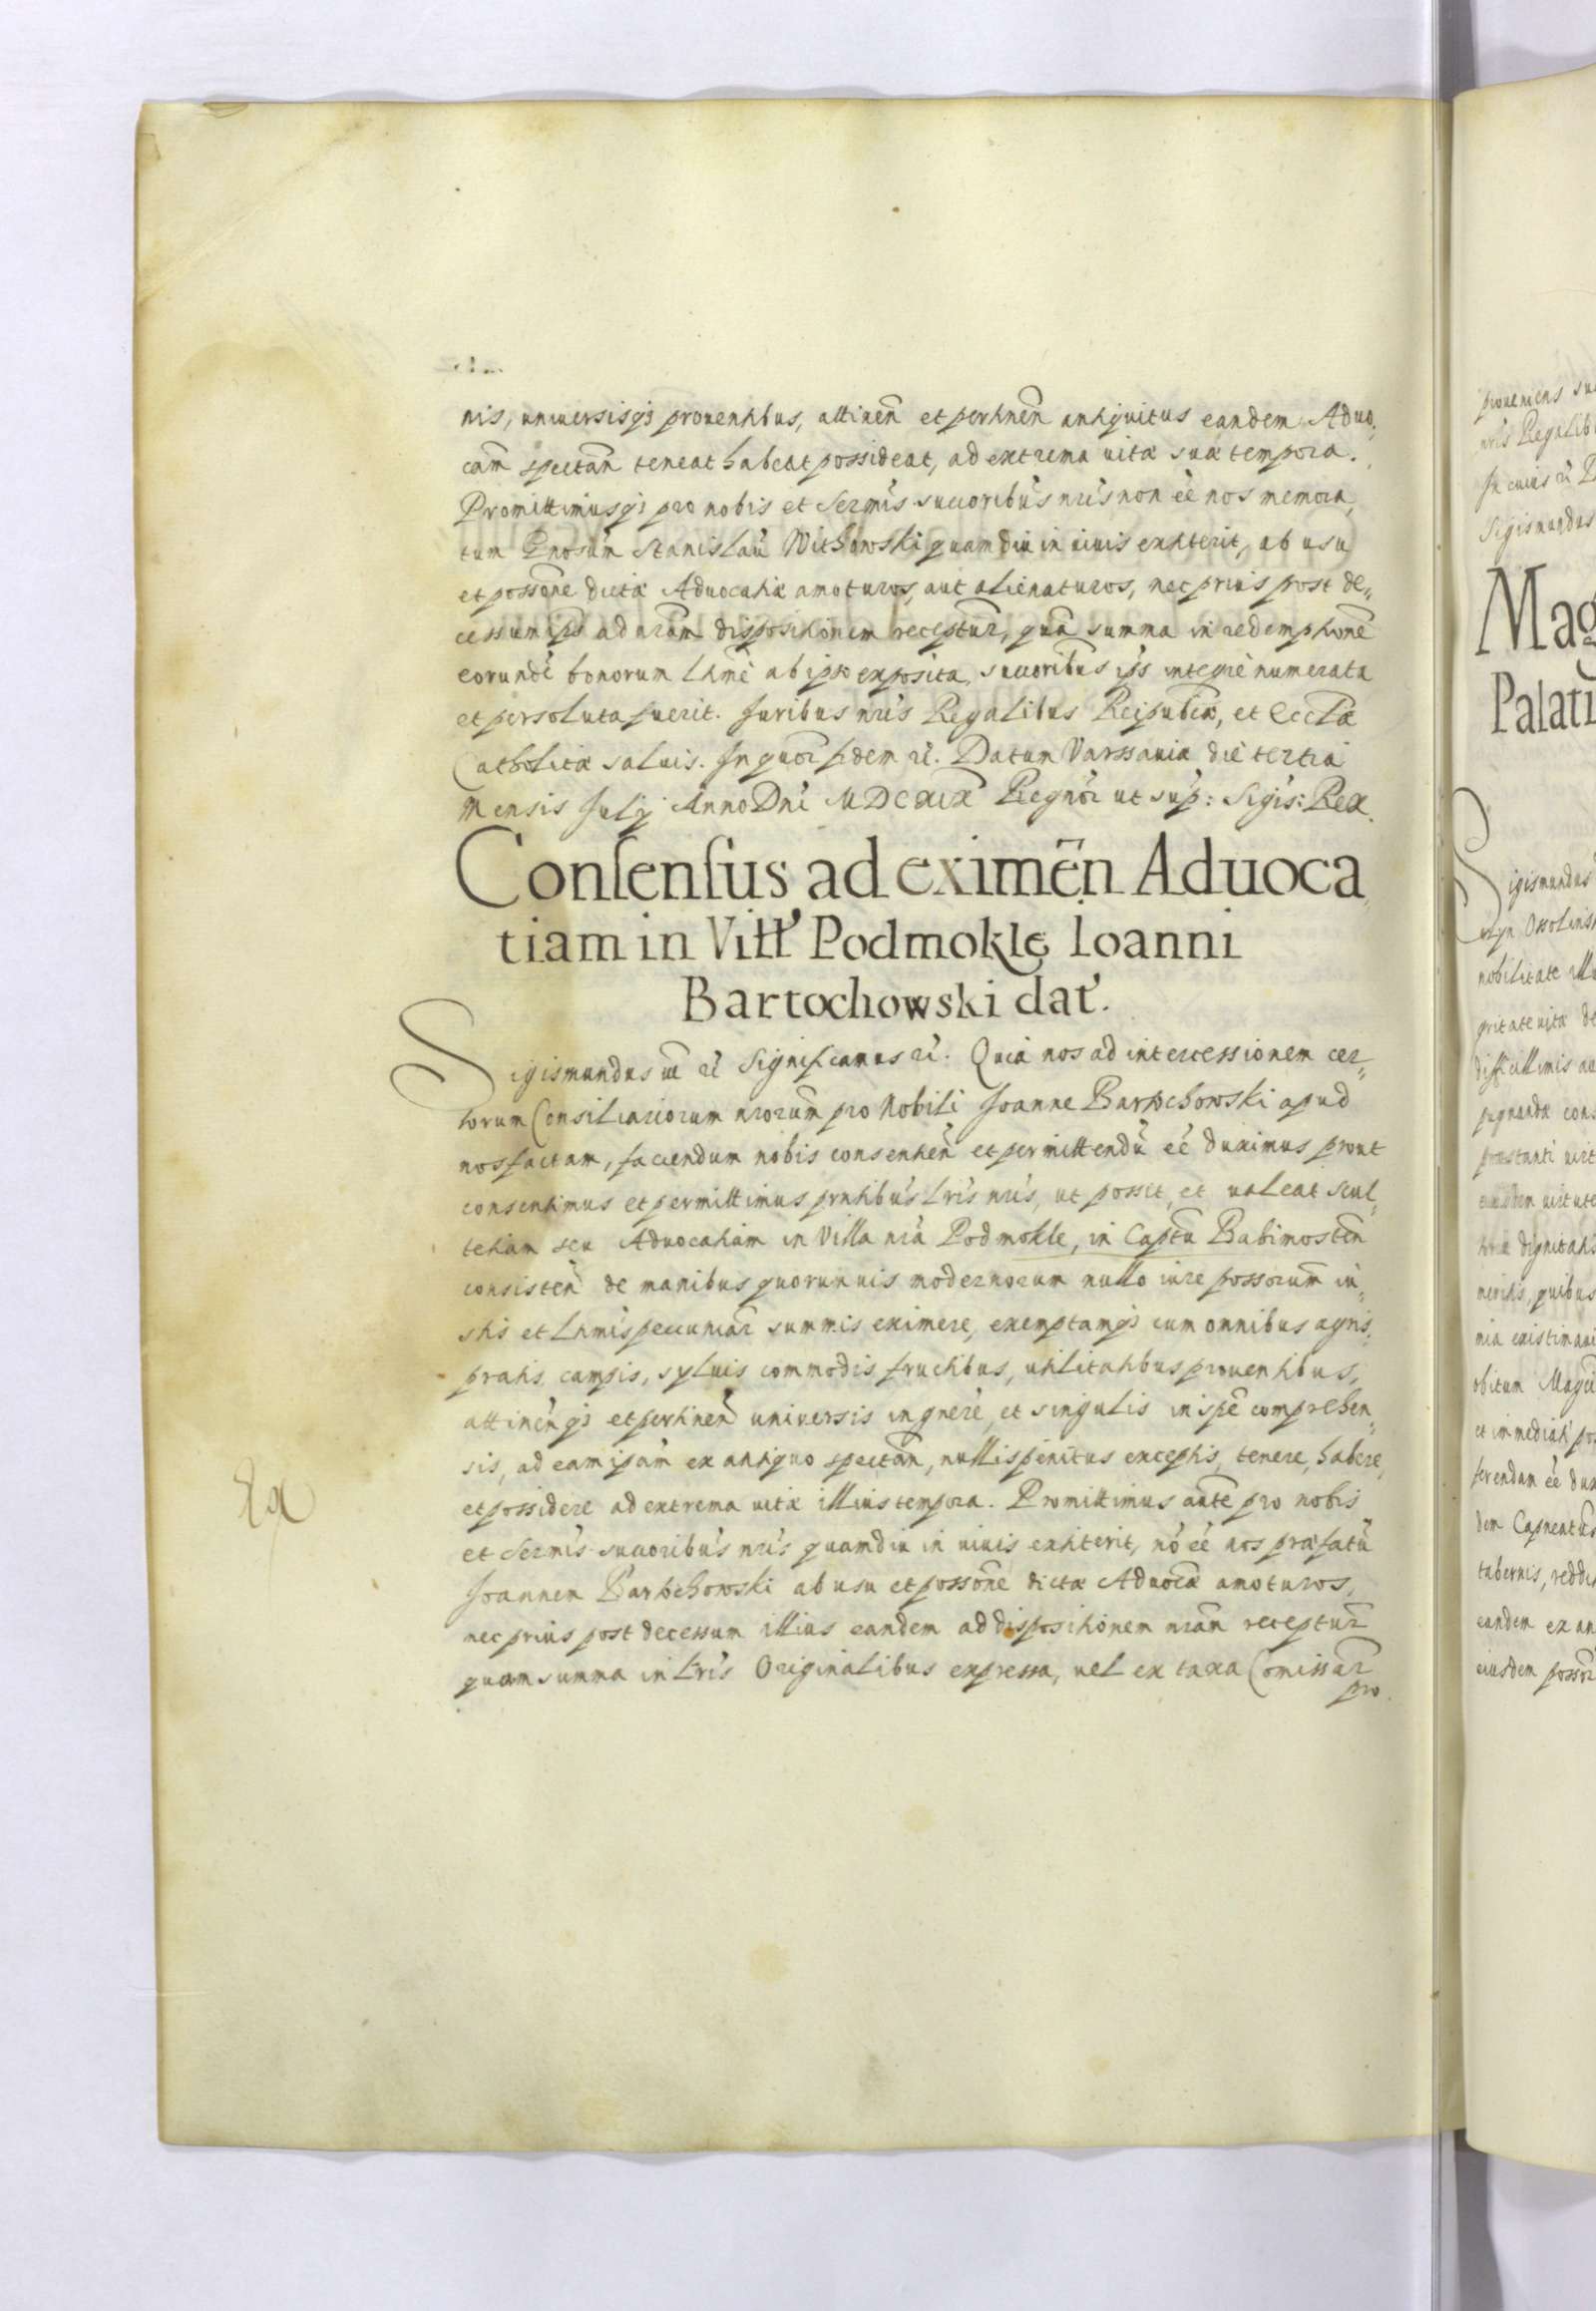 nis, universisqȝ prouentibus, attinen̄ et pertinen̄ antiquitus eandem Aduo,
cam̄ spectan̄ teneat habeat possideat, ad extrema uitæ suæ tempora.
Promittimusqȝ pro nobis et Sermis succoribus nris non ēē nos memora,
tum Gnosum Stanislaū Withowski quamdiu in uiuis extiterit, ab usu
et possone dictæ Aduocatiæ amoturos, aut alienaturos, nec prius post de„
cessum ips̄ ad nram̄ dispositionem receptur̄, quā summa in redemptionē
eorundē bonorum Lt̄mē ab ipso exposita, succoribus ips̄ integrè numerata
et persoluta fuerit. Juribus nris Regalibus Reipublicæ, et Eccl̄æ
Catholicæ saluis. In quor̄ fidem rc̄. Datum Varssauiæ die tertia
Mensis July Anno Dn̄i MDCXIX Regnor̄ ut sup: Sigis: Rex.
Consensus ad eximen̄ Aduoca,
tiam in Vill' Podmokle Ioanni
Bartochowski dat'.
Sigismundus III rc̄ Significamus rc̄. Quia nos ad intercessionem cer„
torum Consiliariorum nrorum̄ pro Nobili Joanne Bartochowski apud
nos factam, faciendum nobis consentien̄ et permittendū ēē duximus prout
consentimus et permittimus prntibus Lris nris, ut possit, et ualeat scul„
tetiam seu Aduocatiam in Villa nra Podmokle, in Capt̄u Babimosten̄
consisten̄ de manibus quorumuis modernorum nullo iure possorum̄ iu„
stis et Lt̄mis pecuniar̄ summis eximere, exemptamqȝ cum omnibus agris,
pratis, campis, syluis commodis fructibus, utilitatibus prouentibus,
attinen̄qȝ et pertinen̄ universis in gnere, et singulis in spē comprehen„
sis, ad eam ipsam̄ ex antiquo spectan̄, nullis penitus exceptis, tenere, habere,
et possidere ad extrema uitæ illius tempora. Promittimus aut̄e pro nobis
et Sermis succoribus nris quamdiu in uiuis extiterit, nō ēē nos præfatū
Joannem Bartochowski ab usu et possone dictæ Aduocæ amoturos,
nec prius post decessum illius eandem ad dispositionem nram̄ receptur̄
quam summa in Lris Originalibus expressa, uel ex taxa Comissar̄
pro.
Ex
proueniens su
nris Regalib
In cuius rc̄
Sigismundus
Mag
Palati
Sigismundus
Ossolins
nobilitate illu
gritate uitæ de
difficillimis
pugnandæ cons
præstanti uirt
uirtute
dignitatis
meritis, quibus
mia existimaui
obitum Magci
et immediati pos
ferendam ēē dux
dem Capneatus
tabernis, reddi
eandem ex an
eiusdem possor̄